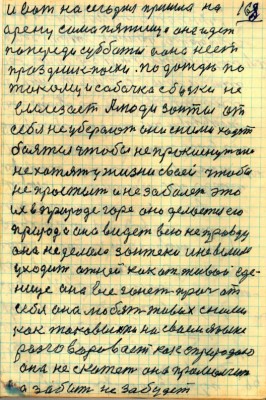 168
и вот на сегодня пришла на
арену сама пятница она идет
попереди суббота она несет
праздник пасхи. но дождь по
такому и собачка с будки не
вылезает люди зонты от
себя не уберают они с ними ходят
боятся чтобы не промкнут они
не хотят у жизни своей чтобы
не простыть и не заболеть это
их в природе горе оно делается ею
природа она видет всю неправду
она не делала зонтики и не ними
уходить от ней как от живой еде-
нице она вне гонет проч от
себя она любят живых с ними
как таковыми на своем языке
разговаривает как с природою
она не скажет она промолчит
а забыть не забудет